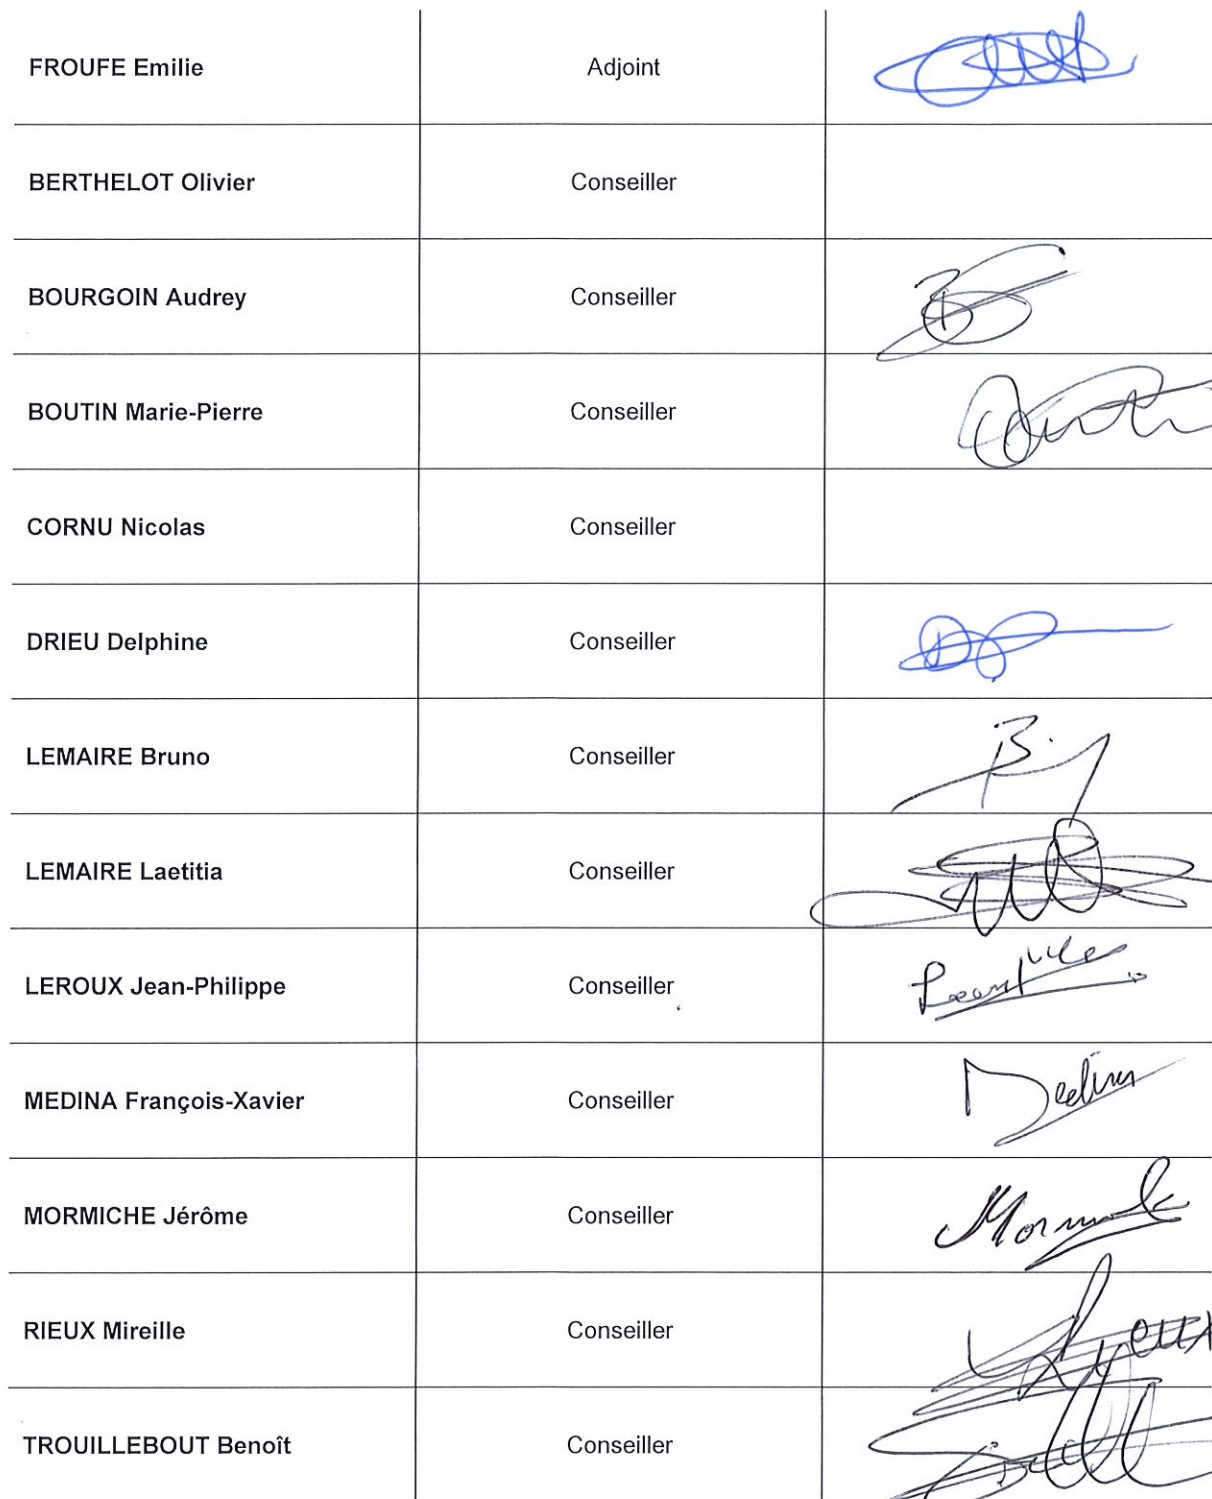 FROUFE Emilie Adjoint
BERTHELOT Olivier Conseiller
BOURGOIN Audrey Conseiller
BOUTIN Marie-Pierre Conseiller
CORNU Nicolas Conseiller
DRIEU Delphine Conseiller
LEMAIRE Bruno Conseiller
LEMAIRE Laetitia Conseiller
LEROUX Jean-Philippe Conseiller
MEDINA François-Xavier Conseiller Medina
MORMICHE Jérôme Conseiller
RIEUX Mireille Conseiller
TROUILLEBOUT Benoît Conseiller